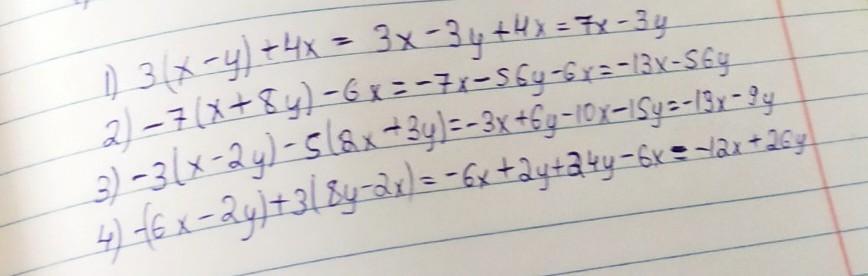 1) 3(x-y)+4x = 3x-3y+4x=7x-3y
2) -7(x+8y)-6x=-7x-56y-6x=-13x-56y
3) -3(x-2y)-5(2x+3y)=-3x+6y-10x-15y=-13x-9y
4) -(6x-2y)+3(8y-2x)=-6x+2y+24y-6x=-12x+26y